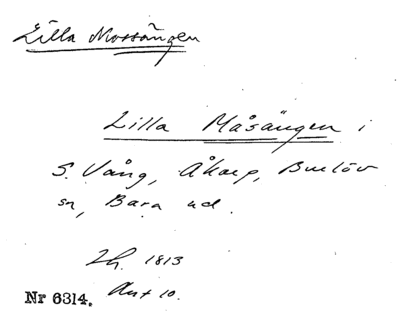 Lilla Mossängen
Lilla Måsängen i
S. Vång, Åkarp, Burlöv
sn, Bara hd.
Lh. 1813
Akt 10.
Nr 6314.